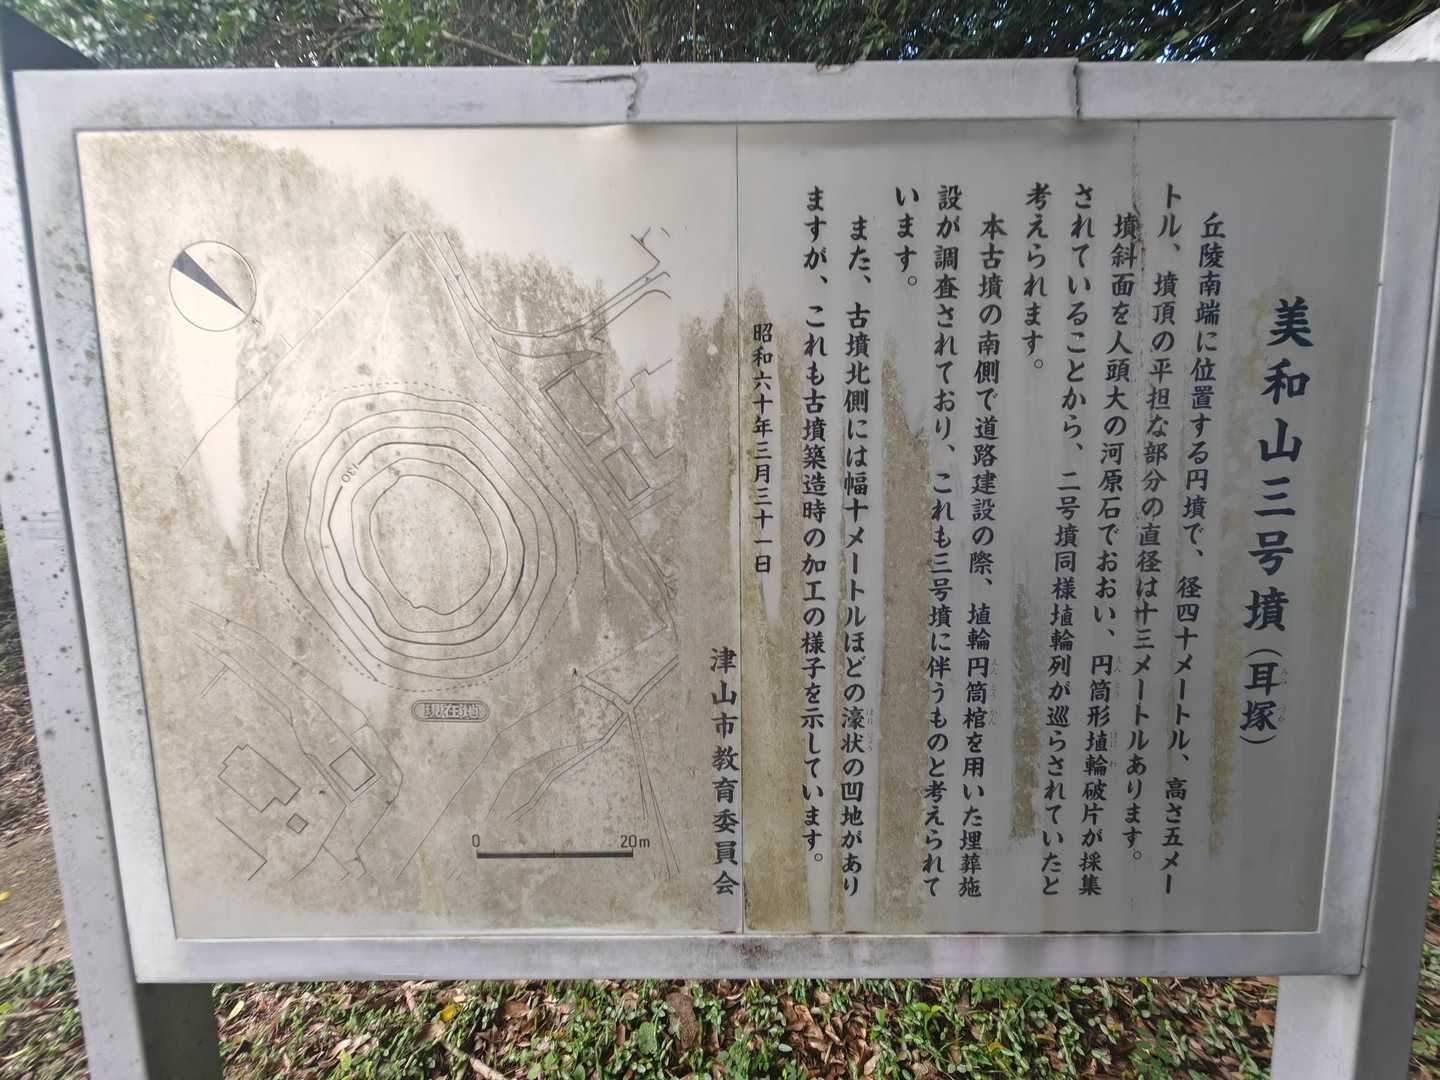 美和山三号墳(耳塚)
みみづか
丘陵南端に位置する円墳で、径四十メートル、高さ五メー
トル、墳頂の平担な部分の直径は十三メートルあります。
墳斜面を人頭大の河原石でおおい、円筒形埴輪破片が採集
えんとう
はにわ
されていることから、二号墳同様埴輪列が巡らされていたと
考えられます。
本古墳の南側で道路建設の際、埴輪円筒棺を用いた埋葬施
えんとうかん
設が調査されており、これも三号墳に伴うものと考えられて
います。
また、古墳北側には幅十メートルほどの濠状の凹地があり
ほりじょう
ますが、これも古墳築造時の加工の様子を示しています。
昭和六十年三月三十一日
津山市教育委員会
130
現在地
0 20m